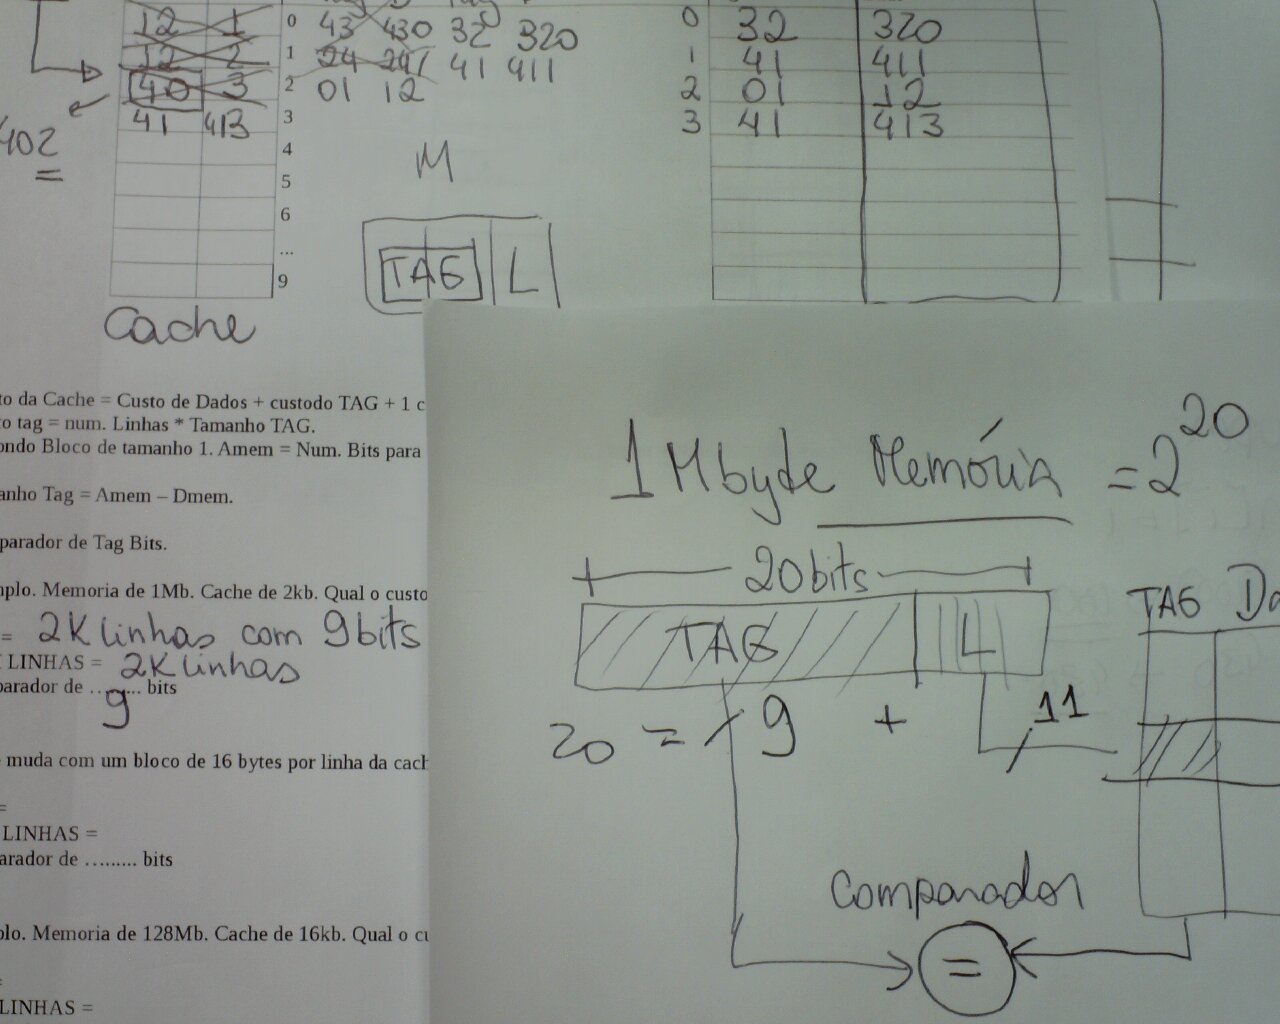 12 1 0 43 430 32 320 0 32 320
12 2 1 24 241 41 411 1 41 411
40 3 2 01 12 2 01 12
41 413 3 3 41 413
402
4
M
5
6
TAG L
...
9
Cache
to da Cache = Custo de Dados + custodo TAG + 1 c
o tag = num. Linhas * Tamanho TAG.
ondo Bloco de tamanho 1. Amem = Num. Bits para
anho Tag = Amem – Dmem.
parador de Tag Bits.
nplo. Memoria de 1Mb. Cache de 2kb. Qual o custo
= 2K linhas com 9 bits
LINHAS = 2K linhas
parador de ......... bits
9
muda com um bloco de 16 bytes por linha da cach
=
LINHAS =
arador de ......... bits
plo. Memoria de 128Mb. Cache de 16kb. Qual o cu
LINHAS =
1 Mbyte Memória = 2^20
20 bits
TAG L
TAG Da
20 = 9 + 11
Comparador
=